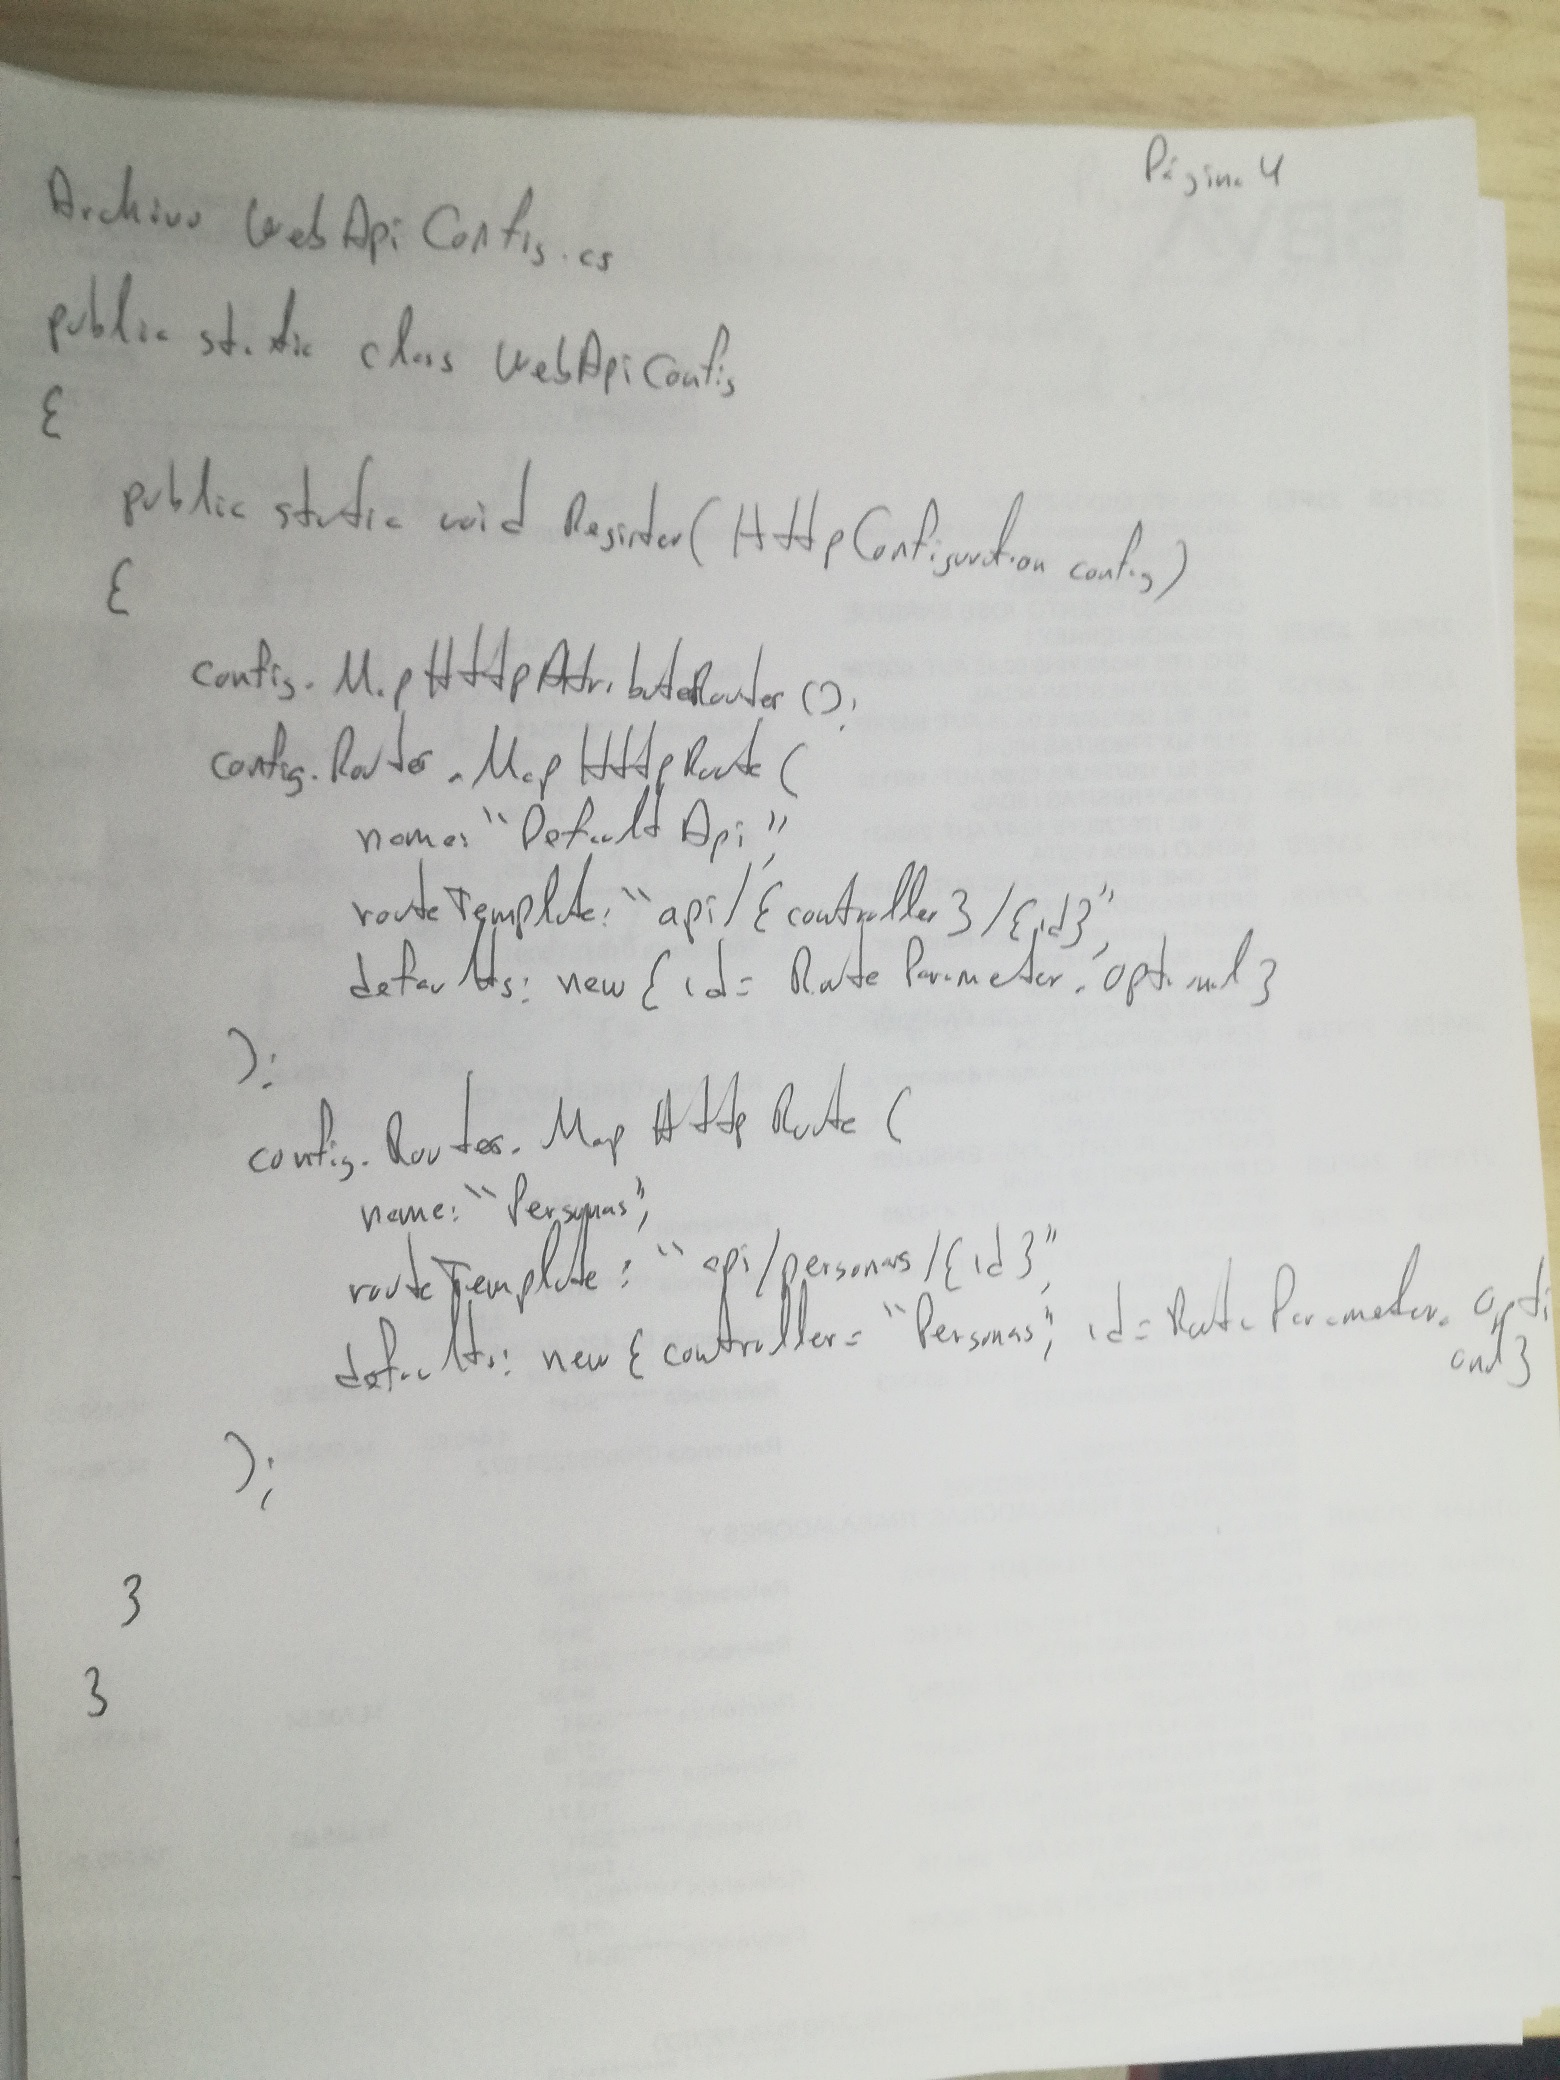 Página 4
Archivo WebApiConfig.cs
public static class WebApiConfig
{
public static void Register(HttpConfiguration config)
{
config.MapHttpAttributeRoutes();
config.Routes.MapHttpRoute(
name: "DefaultApi",
routeTemplate: "api/{controller}/{id}",
defaults: new { id = RouteParameter.Optional }
);
config.Routes.MapHttpRoute(
name: "Personas",
routeTemplate: "api/personas/{id}",
defaults: new { controller = "Personas", id = RouteParameter.Opti
onal }
);
}
}